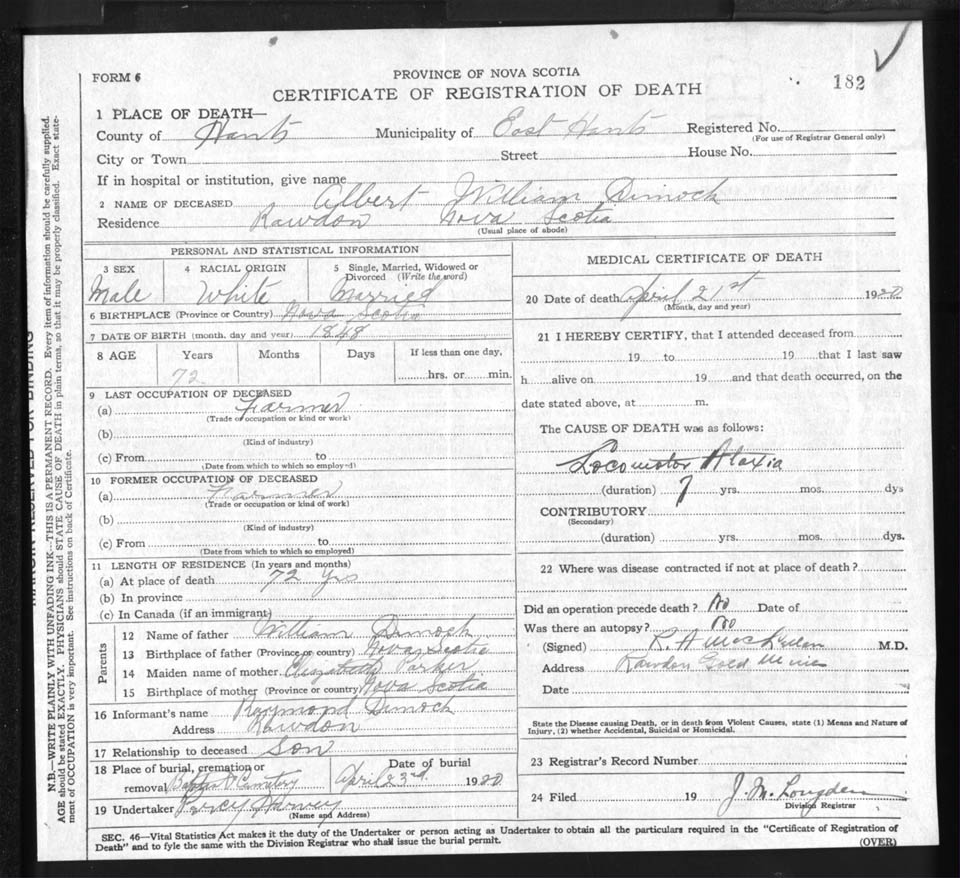 FORM 6
PROVINCE OF NOVA SCOTIA
182
CERTIFICATE OF REGISTRATION OF DEATH
1 PLACE OF DEATH—
County of Hants Municipality of East Hants Registered No.
(For use of Registrar General only)
City or Town Street House No.
If in hospital or institution, give name
2 NAME OF DECEASED Albert William Dimock
Residence Rawdon Nova Scotia
(Usual place of abode)
PERSONAL AND STATISTICAL INFORMATION
3 SEX 4 RACIAL ORIGIN 5 Single, Married, Widowed or Divorced (Write the word)
Male White Married
6 BIRTHPLACE (Province or Country) Nova Scotia
7 DATE OF BIRTH (month, day and year) 1848
8 AGE Years Months Days If less than one day,
72 hrs. or min.
9 LAST OCCUPATION OF DECEASED
(a) Farmer
(Trade or occupation or kind or work)
(b)
(Kind of industry)
(c) From to
(Date from which to which so employed)
10 FORMER OCCUPATION OF DECEASED
(a) Farmer
(Trade or occupation or kind of work)
(b)
(Kind of industry)
(c) From to
(Date from which to which so employed)
11 LENGTH OF RESIDENCE (In years and months)
(a) At place of death 72 Yrs
(b) In province
(c) In Canada (if an immigrant)
Parents
12 Name of father William Dimock
13 Birthplace of father (Province or country) Nova Scotia
14 Maiden name of mother Elizabeth Parker
15 Birthplace of mother (Province or country) Nova Scotia
16 Informant's name Raymond Dimock
Address Rawdon
17 Relationship to deceased Son
18 Place of burial, cremation or Date of burial
removal Baptist Cemetery April 23rd 1920
19 Undertaker Percy Harvey
(Name and Address)
MEDICAL CERTIFICATE OF DEATH
20 Date of death April 21st 1920
(Month, day and year)
21 I HEREBY CERTIFY, that I attended deceased from
19 to 19 that I last saw
h alive on 19 and that death occurred, on the
date stated above, at m.
The CAUSE OF DEATH was as follows:
Locomotor Ataxia
(duration) 7 yrs. mos. dys
CONTRIBUTORY
(Secondary)
(duration) yrs. mos. dys.
22 Where was disease contracted if not at place of death?
Did an operation precede death? No Date of
Was there an autopsy? No
(Signed) R. H M.D.
Address Rawdon Gold Mines
Date
State the Disease causing Death, or in death from Violent Causes, state (1) Means and Nature of
Injury, (2) whether Accidental, Suicidal or Homicidal.
23 Registrar's Record Number
24 Filed 19 J. M. Longden
Division Registrar
SEC. 46—Vital Statistics Act makes it the duty of the Undertaker or person acting as Undertaker to obtain all the particulars required in the "Certificate of Registration of
Death" and to fyle the same with the Division Registrar who shall issue the burial permit.
(OVER)
MARGIN RESERVED FOR BINDING
N.B.—WRITE PLAINLY WITH UNFADING INK—THIS IS A PERMANENT RECORD. Every item of information should be carefully supplied.
AGE should be stated EXACTLY. PHYSICIANS should STATE CAUSE OF DEATH in plain terms, so that it may be properly classified. Exact state-
ment of OCCUPATION is very important. See instructions on back of Certificate.